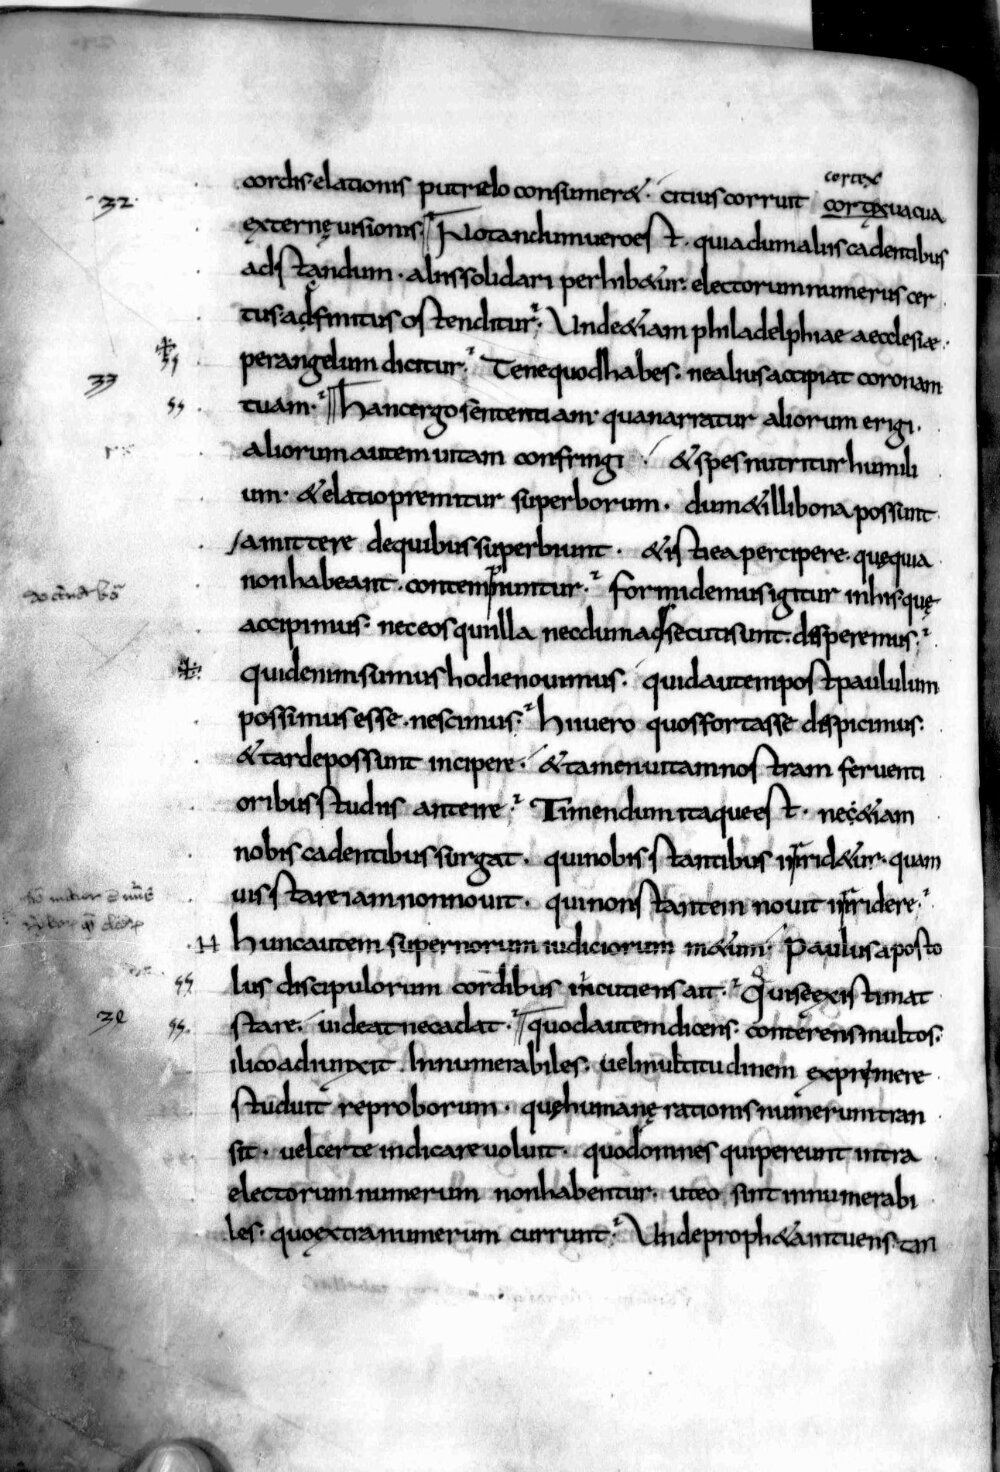 cortex
32
cordis elationis putredo consumeret · citius corruit cortex vacua
externę visionis · Notandum vero est · quia dum aliis cadentibus
ad standum · alii solidari perhibentur · electorum numerus cer
tus ad finitus ostenditur · Unde & iam philadelphiae aecclesiæ ·
per angelum dicitur · Tene quod habes · ne alius accipiat coronam
33
tuam · Hanc ergo sententiam · qua narratur aliorum erigi ·
aliorum autem vitam confringi · & spes nutritur humili
um · & elatio premitur superborum · dum & illi bona possunt
amittere de quibus superbiunt · & isti ea percipere · quę quia
non habeant · contempnuntur · formidemus igitur in his quę
accipimus · nec eos qui illa necdum adsecuti sunt · disperemus ·
quid enim sumus hodie novimus · quid autem post paululum
possimus esse · nescimus · hi vero quos fortasse despicimus ·
& tarde possunt incipere · & tamen vitam nostram ferventi
oribus studiis anteire · Timendum itaque est · nec & iam
nobis cadentibus surgat · qui nobis stantibus inrid&ur · quam
vis stare iam non novit · qui non stantem novit inridere ·
Hunc autem supernorum iudiciorum m&um · Paulus aposto
lus discipulorum cordibus incutiens ait · Qui se existimat
stare · videat ne cadat · quod autem dicens · conterens multos ·
ilico adiunxit · Innumerabiles · vel multitudinem exprimere
studuit reproborum · quę humanę rationis numerum tran
sit · vel certe indicare voluit · quod omnes qui pereunt intra
electorum numerum non habentur · ut eo sint innumerabi
les · quo extra numerum currunt · Unde proph&a intuens · tan